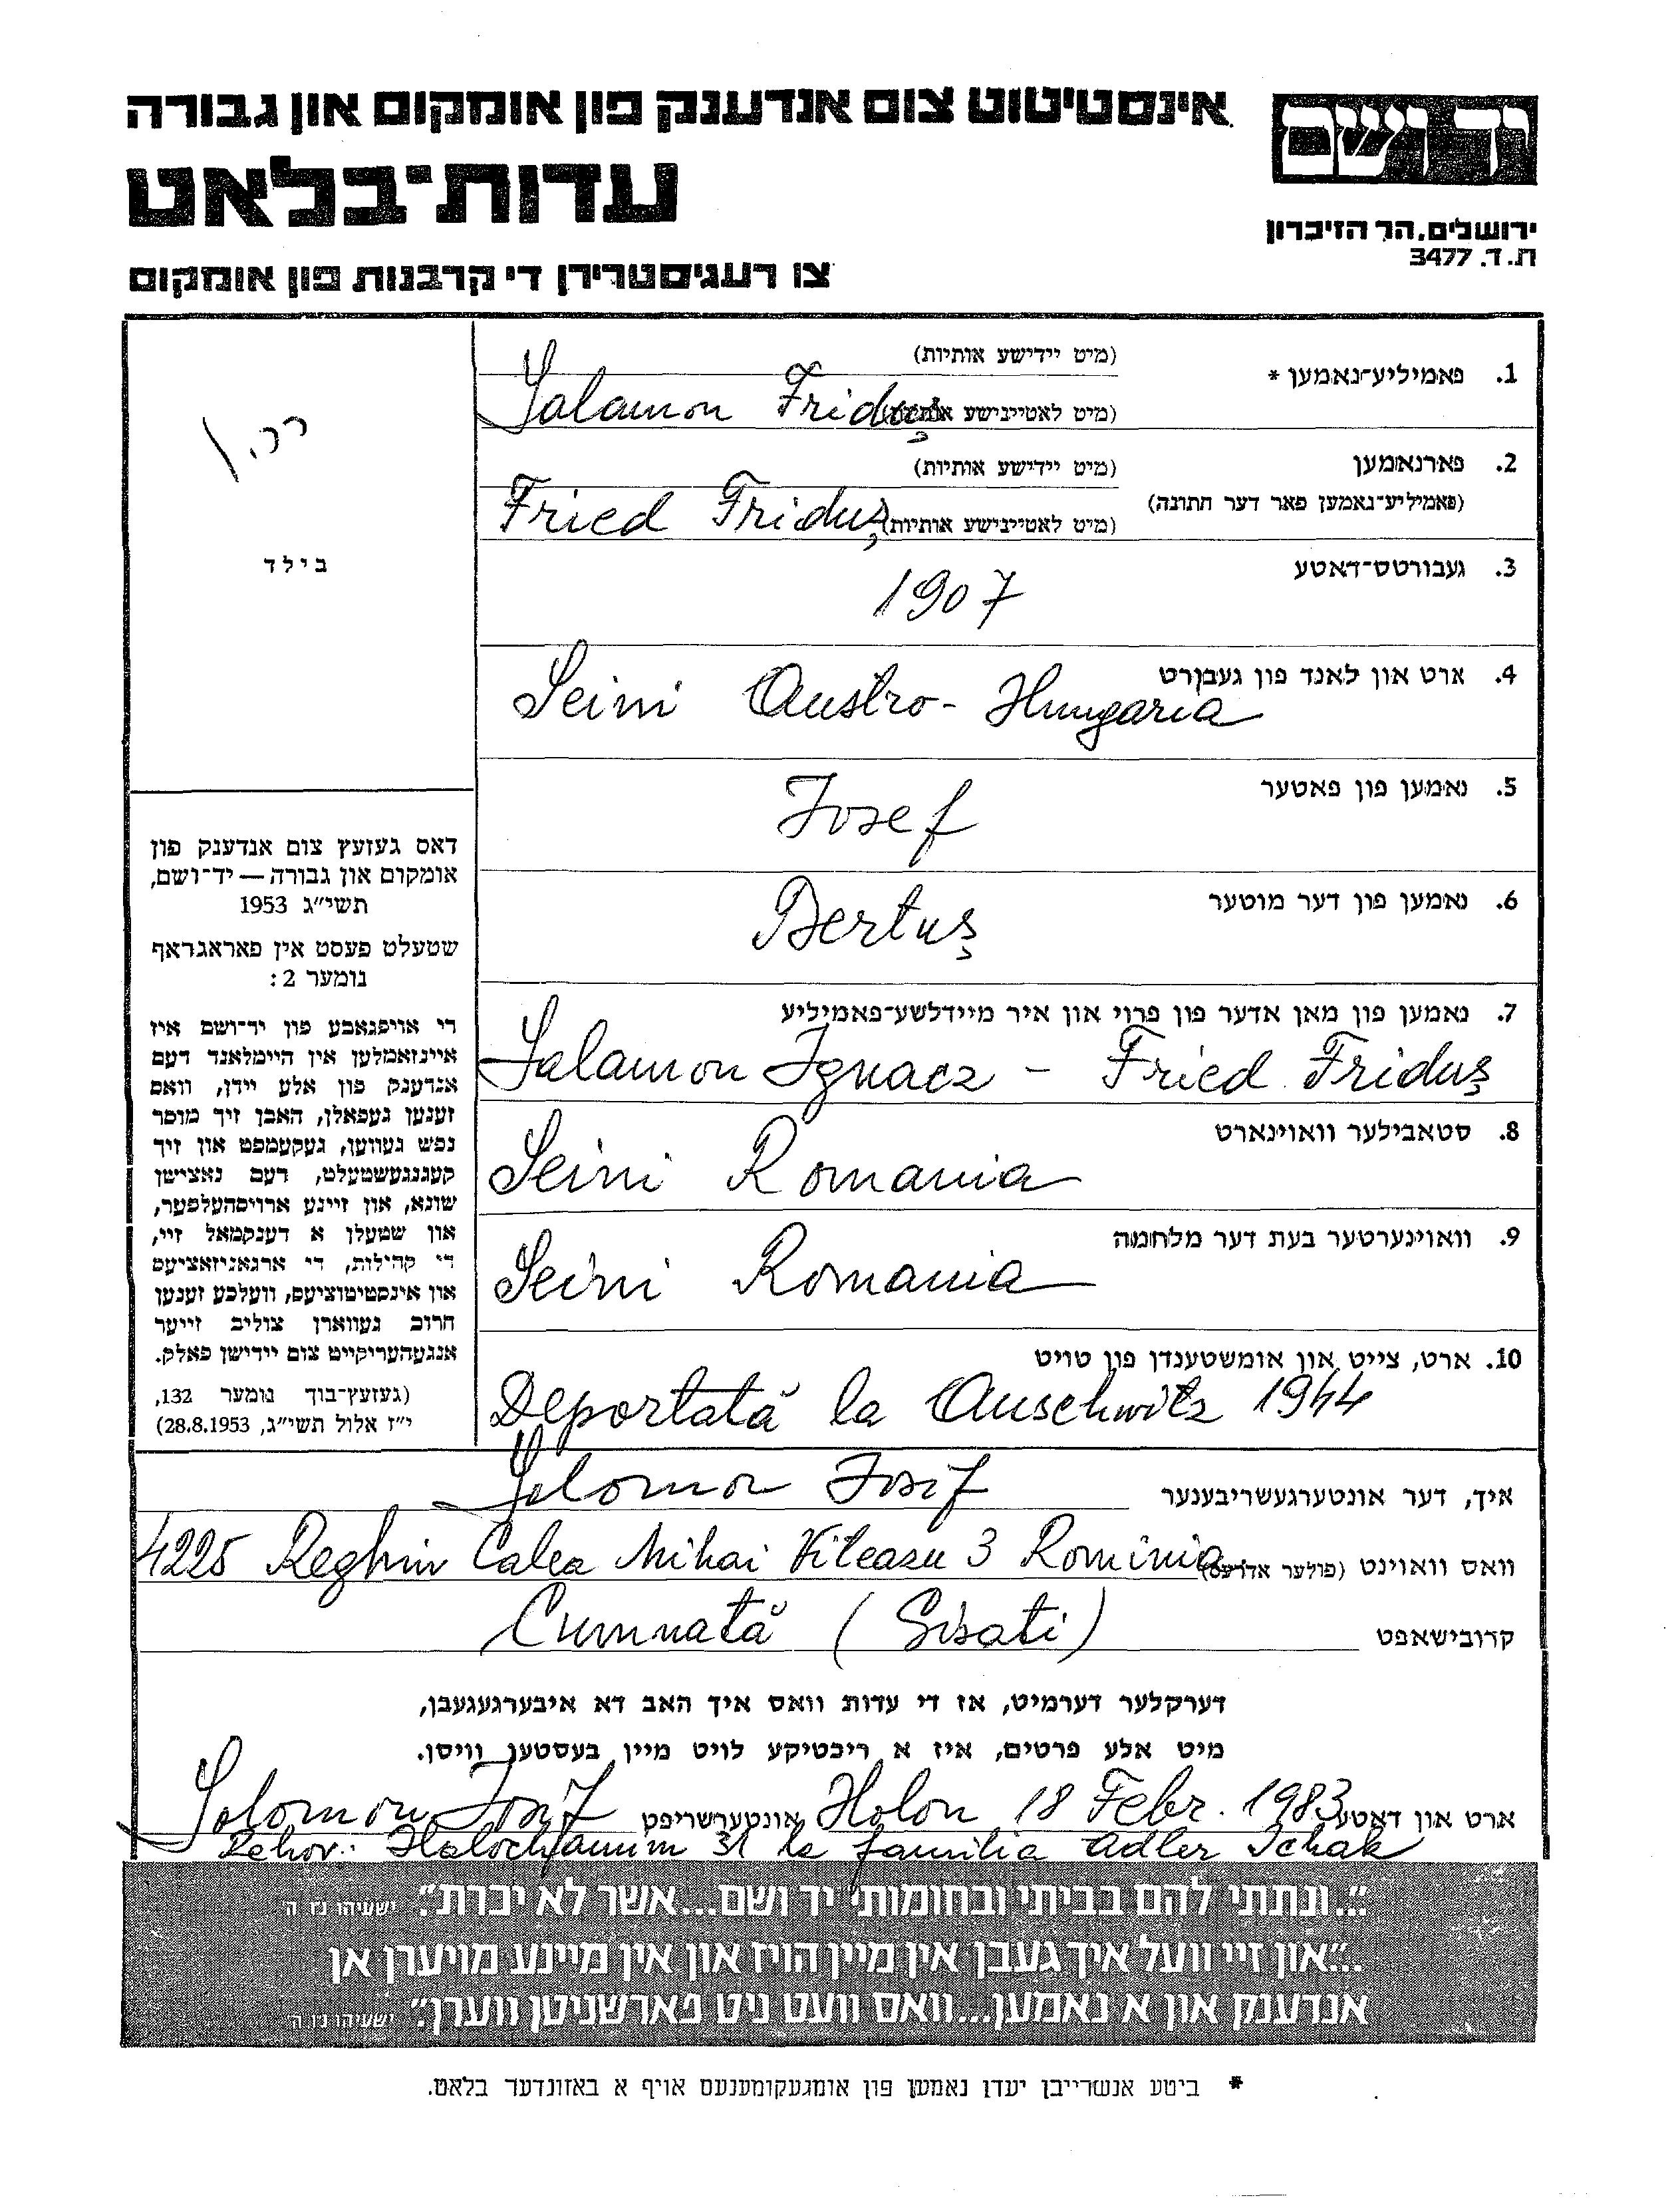 אינסטיטוט צום אנדענק פון אומקום און גבורה
יד ושם
עדות־בלאט
ירושלים, הר הזיכרון
ת. ד. 3477
צו רעגיסטרירן די קרבנות פון אומקום
1. פאמיליע־נאמען *
(מיט יידישע אותיות)
(מיט לאטייניшע אותיות) Salamon Friduș
2. פארנאמען
(פאמיליע־נאמען פאר דער חתונה)
(מיט יידישע אותיות)
(מיט לאטיינישע אותיות) Fried Friduș
בילד
3. געבורטס־דאטע
1907
4. ארט און לאנד פון געבורט
Seini Austro-Hungaria
5. נאמען פון פאטער
Josef
6. נאמען פון דער מוטער
Bertuș
7. נאמען פון מאן אדער פון פרוי און איר מיידלשע־פאמיליע
Salamon Ignacz - Fried Friduș
8. סטאבילער וווינארט
Seini Romania
9. וווינערטער בעת דער מלחמה
Seini Romania
10. ארט, צייט און אומשטענדן פון טויט
Deportată la Auschwitz 1944
דאס געזעץ צום אנדענק פון
אומקום און גבורה — יד־ושם,
תשי״ג 1953
שטעלט פעסט אין פאראגראף
נומער 2:
די אויפגאבע פון יד־ושם איז
איינזאמלען אין היימלאנד דעם
אנדענק פון אלע יידן, וואס
זענען געפאלן, האבן זיך מוסר
נפש געווען, געקעמפט און זיך
קעגנגעשטעלט, דעם נאצישן
שונא, און זיינע ארויסהעלפער,
און שטעלן א דענקמאל זיי,
די קהילות, די ארגאניזאציעס
און אינסטיטוציעס, וועלכע זענען
חרוב געווארן צוליב זייער
אנגעהעריקייט צום יידישן פאלק.
(געזעץ־בוך נומער 132,
י״ז אלול תשי״ג, 28.8.1953)
איך, דער אונטערגעשריבענער Solomon Iosif
וואס וואוינט (פולער אדרעס) 4225 Reghin Calea Mihai Viteazu 3 Rominia
קרובישאפט Cumnată (Gisati)
דערקלער דערמיט, אז די עדות וואס איך האב דא איבערגעגעבן,
מיט אלע פרטים, איז א ריכטיקע לויט מיין בעסטען וויסן.
ארט און דאטע Holon 18 Febr. 1983 אונטערשריפט Solomon Iosif
Rehov: Halochamim 31 la familia Adler Ichak
״...ונתתי להם בביתי ובחומותי יד ושם...אשר לא יכרת״. ישעיהו נו ה
״...און זיי וועל איך געבן אין מיין הויז און אין מיינע מויערן אן
אנדענק און א נאמען...וואס וועט ניט פארשניטן ווערן״. ישעיהו נו ה
* ביטע אנשרייבן יעדן נאמען פון אומגעקומענעם אויף א באזונדער בלאט.